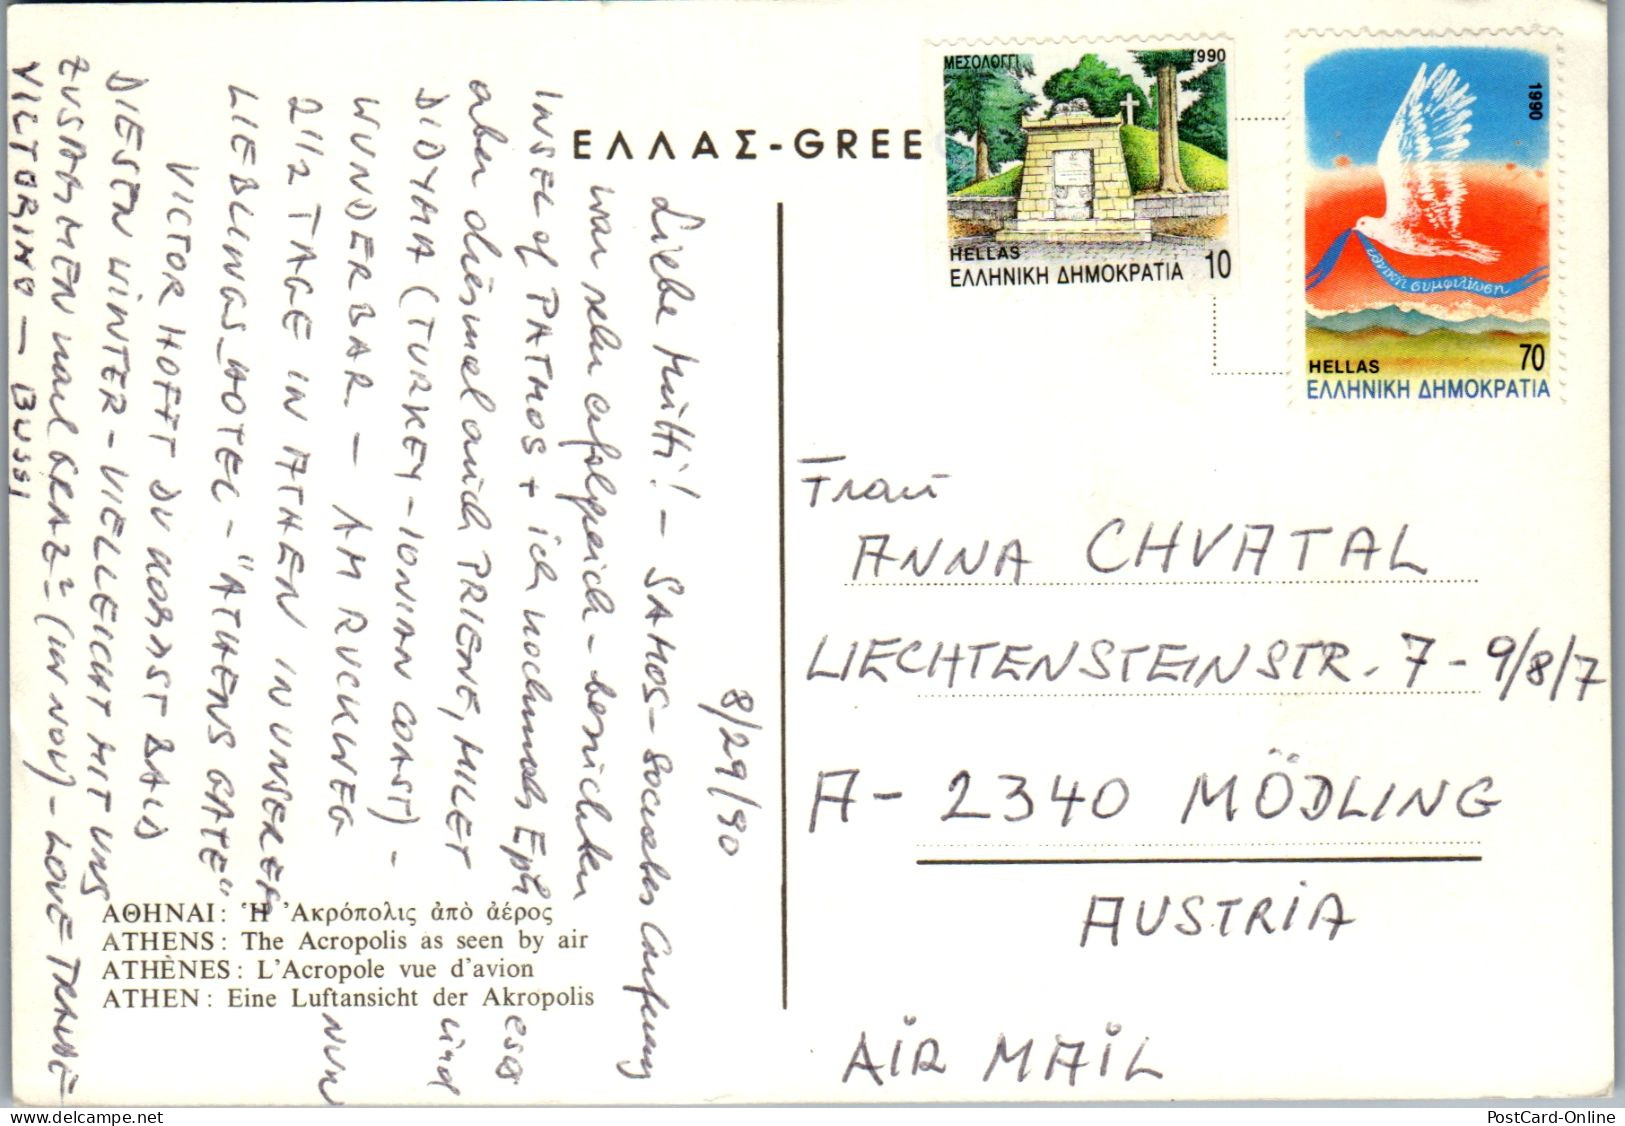 ΕΛΛΑΣ-GREE
ΜΕΣΟΛΟΓΓΙ
1990
HELLAS
ΕΛΛΗΝΙΚΗ ΔΗΜΟΚΡΑΤΙΑ 10
1990
συμφιλίωση
HELLAS 70
ΕΛΛΗΝΙΚΗ ΔΗΜΟΚΡΑΤΙΑ
8/29/90
Liebe Mutti! – SAMOS –
war sehr erfolgreich – besichten
INSEL of PATMOS + ich nochmals Eph esos
aber diesmal auch PRIENE, MILET und
DIDYMA (TURKEY – IONIAN COAST) –
WUNDERBAR – AM RUCKWEG NUN
2 1/2 TAGE IN ATHEN IN UNSEREM
LIEBLINGS-HOTEL – "ATHENS GATE"
VICTOR HOFFT DU KOMMST BALD
DIESEN WINTER – VIELLEICHT MIT UNS
ZUSAMMEN nach GRAZ – (im NOV) – LOVE TRAUDE
VIKTORINO – BUSSI
ΑΘΗΝΑΙ: Ἡ Ἀκρόπολις ἀπὸ ἀέρος
ATHENS: The Acropolis as seen by air
ATHÈNES: L'Acropole vue d'avion
ATHEN: Eine Luftansicht der Akropolis
Frau
ANNA CHVATAL
LIECHTENSTEINSTR. 7 – 9/8/7
A – 2340 MÖDLING
AUSTRIA
AIR MAIL
PostCard-Online
delcampe.net